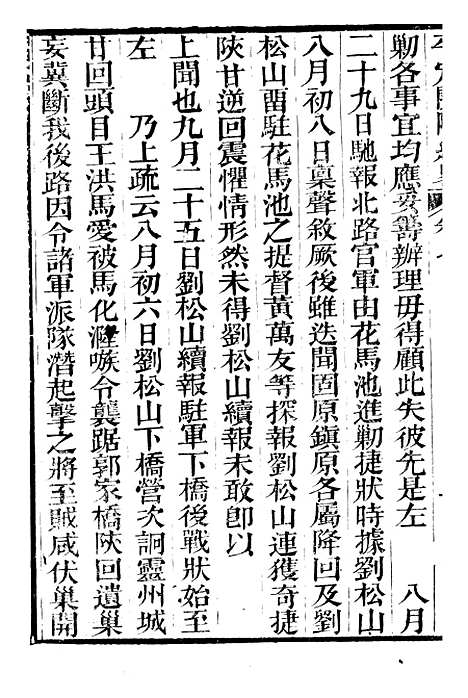 勦各事宜均應妥籌辦理毋得顧此失彼先是左　　八月
二十九日馳報北路官軍由花馬池進勦捷狀時據劉松山
八月初八日稟聲敘厥後雖迭聞固原鎮原各屬降回及劉
松山畱駐花馬池之提督黃萬友等探報劉松山連獲奇捷
陝甘逆回震懼情形然未得劉松山續報未敢卽以
上聞也九月二十五日劉松山續報駐軍下橋後戰狀始至
左　　乃上疏云八月初六日劉松山下橋營次詗靈州城
甘回頭目王洪馬愛被馬化漋嗾令襲踞郭家橋陝回遺巢
妄冀斷我後路因令諸軍派隊潛起擊之將至賊咸伏巢開